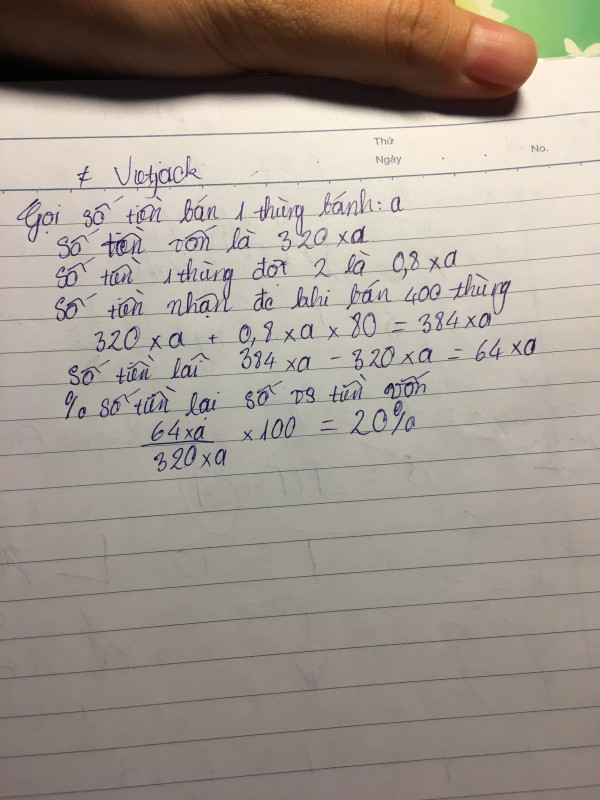 Thứ
Ngày
No.
≠ Vietjack
Gọi số tiền bán 1 thùng bánh: a
Số tiền vốn là 320 x a
Số tiền 1 thùng đợt 2 là 0,8 x a
Số tiền nhận đc khi bán 400 thùng
320 x a + 0,8 x a x 80 = 384 x a
Số tiền lãi 384 x a - 320 x a = 64 x a
% số tiền lại số vs tiền vốn
64 x a
320 x a
x 100 = 20%